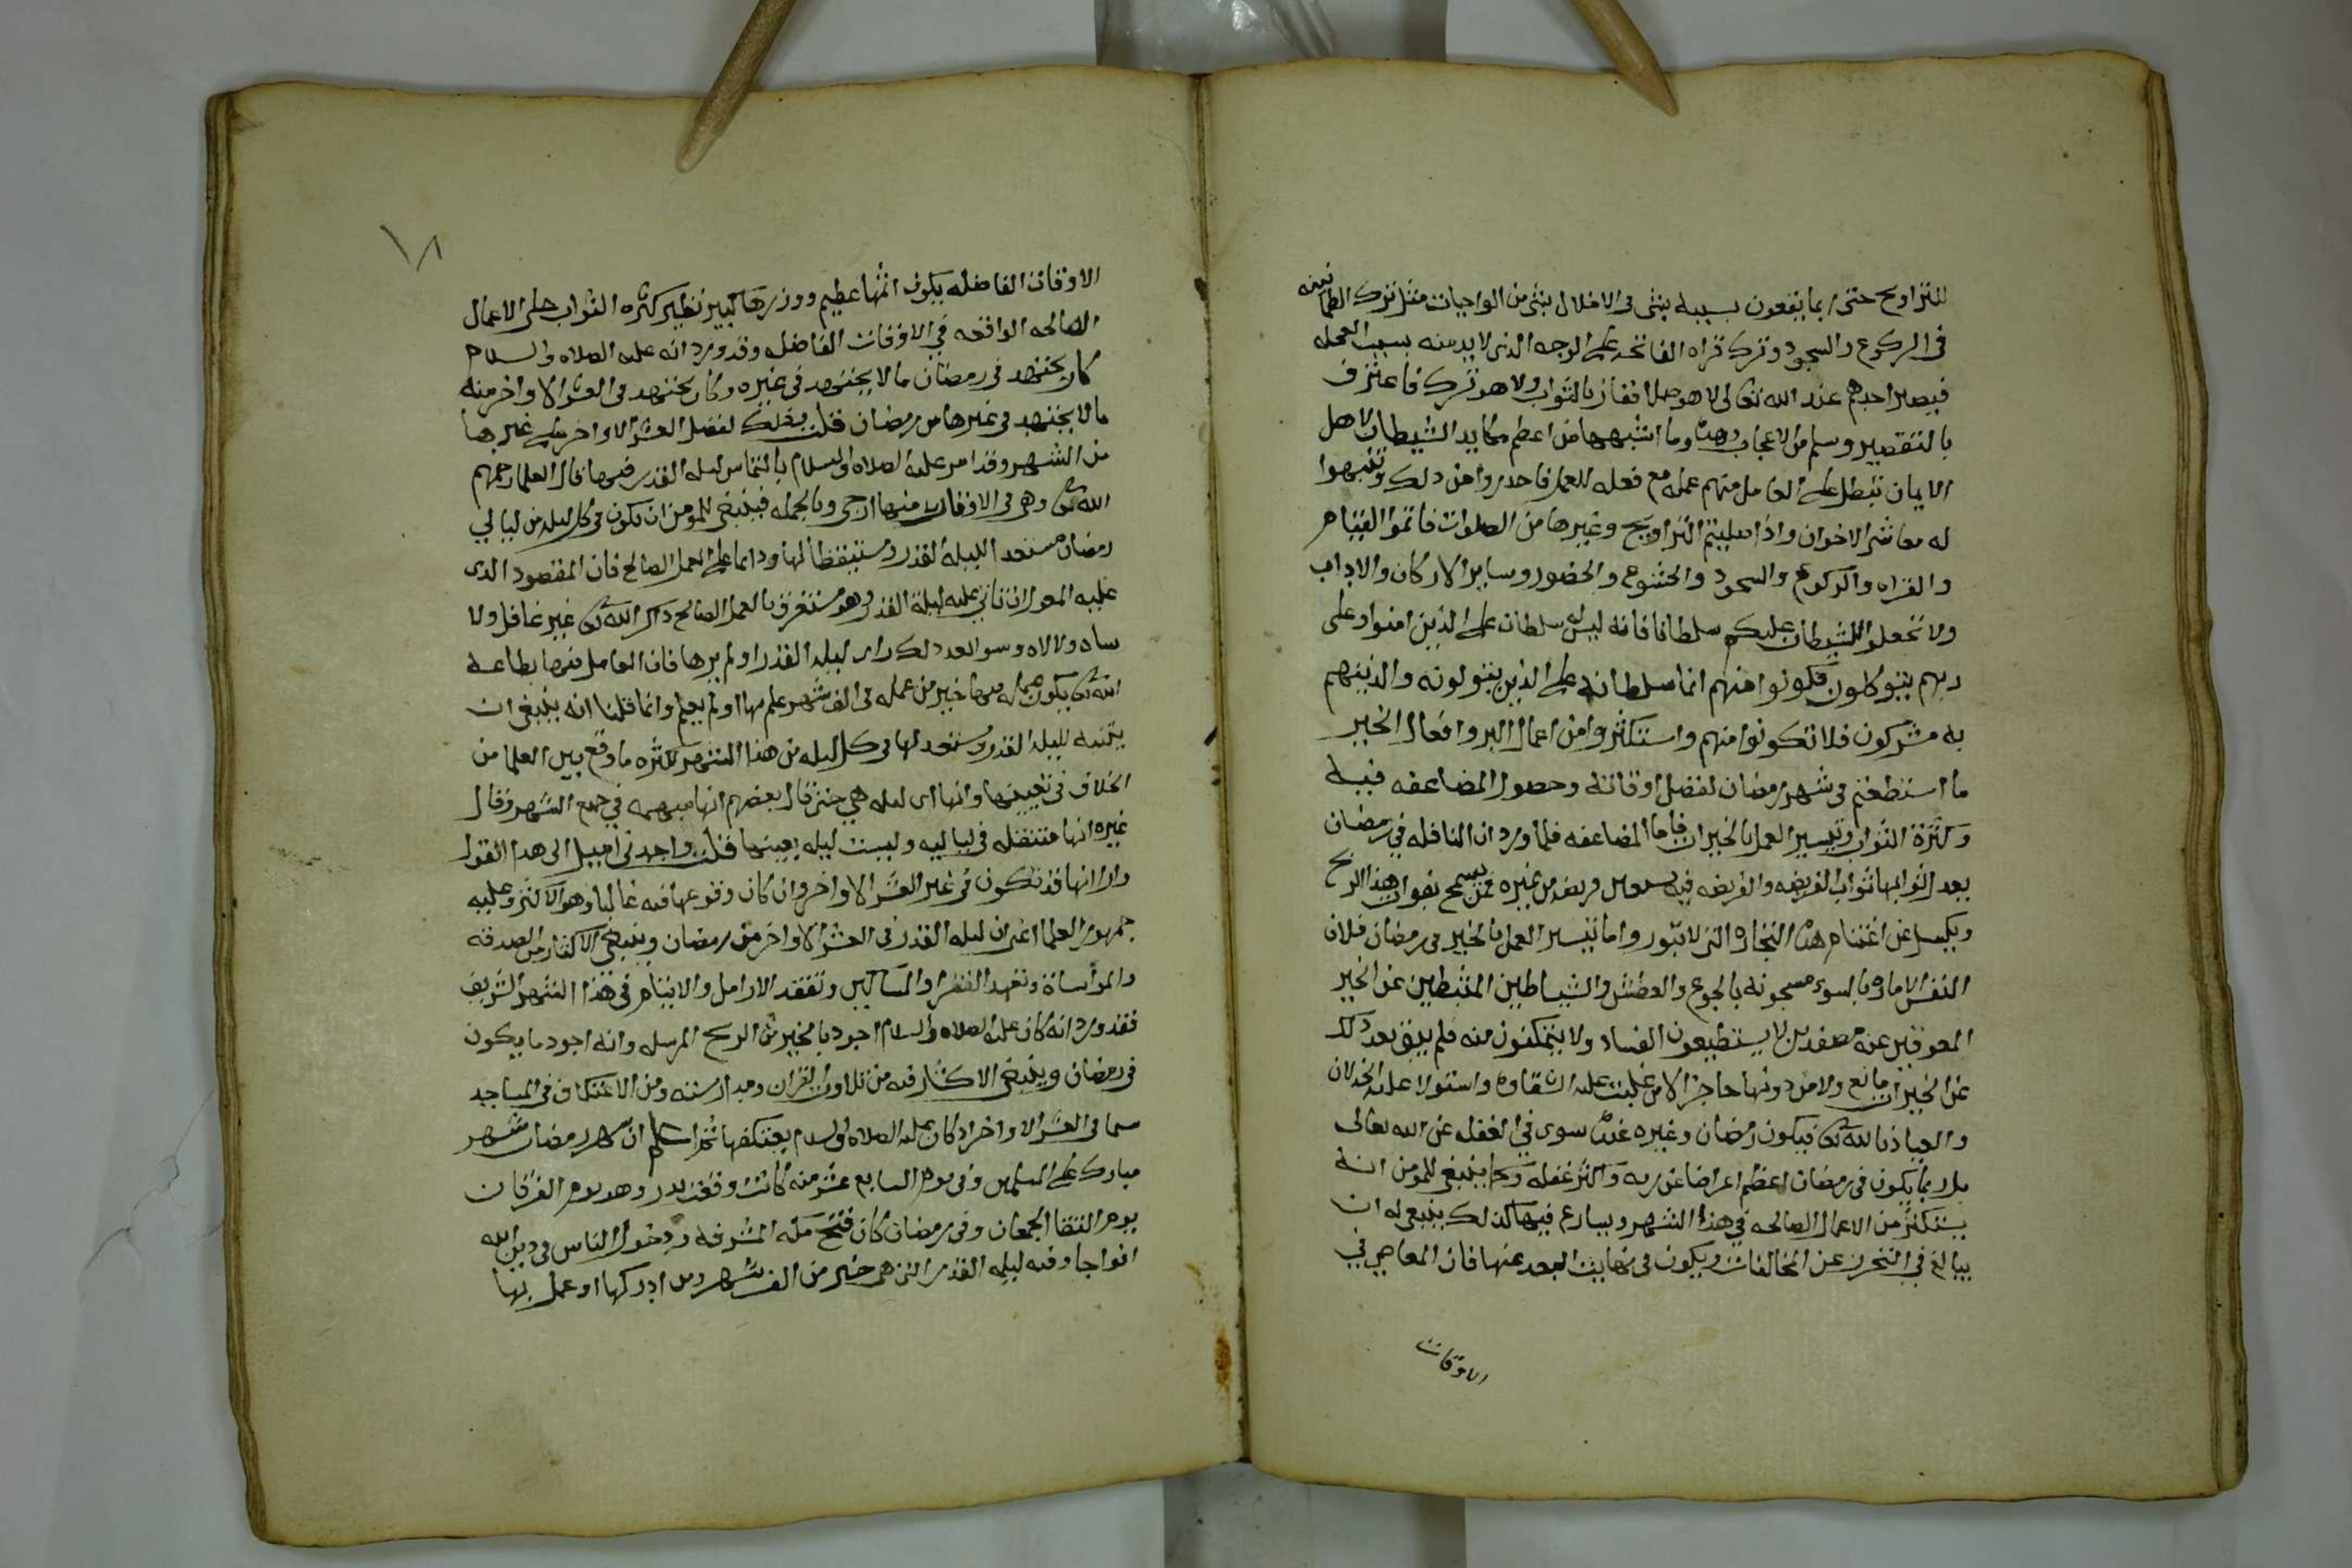 للتراويح حتى ربما يقعون بسببه بشى فى الاخلال بشى من الواجبات مثل ترك الطمانينه
فى الركوع والسجود وترك قراه الفاتحه على الوجه الذى لا بد منه بسبب العجله
فيصير احدهم عند الله تعالى لا هو صلا ففاز بالثواب ولا هو ترك فاعترف
بالتقصير وسلم من الاعجاب وهذه وما اشبهها من اعظم مكايد الشيطان لاهل
الايمان يبطل على العامل منهم عمله مع فعله للعمل فاحذروا من ذلك وتنبهوا
له معاشر الاخوان واذا صليتم التراويح وغيرها من الصلوات فاتموا القيام
والقراه والركوع والسجود والخشوع والحضور وساير الاركان والاداب
ولا تجعلوا للشيطان عليكم سلطانا فانه ليس له سلطان على الذين امنوا وعلى
ربهم يتوكلون فكونوا منهم انما سلطانه على الذين يتولونه والذينهم
به مشركون فلا تكونوا منهم واستكثروا من اعمال البر وافعال الخير
ما استطعتم فى شهر رمضان لفضل اوقاته وحصول المضاعفه فيه
وكثرة الثواب وتيسير العمل بالخيرات فاما المضاعفه فلما ورد ان النافله في رمضان
يعدل ثوابها ثواب الفريضه والفريضه فيه بسبعين فريضه من غيره فمن يسمح بفوات هذا الربح
ويكسل عن اغتنام هذه التجاره التى لا تبور واما تيسير العمل بالخير فى رمضان فلان
النفس الاماره بالسوء مسجونه بالجوع والعطش والشياطين المثبطين عن الخير
المعوقين عنه مصفدين لا يستطيعون الفساد ولا يتمكنون منه فلم يبق بعد ذلك
عن الخيرات مانع ولا من دونها حاجز الا من غلبت عليه الشقاوه واستولا عليه الخذلان
والعياذ بالله تعالى فيكون رمضان وغيره عنده سوى في الغفله عن الله تعالى
بل ربما يكون فى رمضان اعظم اعراضا عن ربه واكثر غفله وكما ينبغي للمومن انه
يستكثر من الاعمال الصالحه في هذا الشهر ويسارع فيها كذلك ينبغى له ان
يبالغ في التحرز عن المخالفات ويكون فى نهايت البعد عنها فان المعاصي في
الاوقات
١٨
الاوقات الفاضله يكون اثمها عظيم ووزرها كبير نظير كثره الثواب على الاعمال
الصالحه الواقعه في الاوقات الفاضله وقد ورد انه عليه الصلاه والسلام
كان يجتهد فى رمضان ما لا يجتهد فى غيره وكان يجتهد فى العشر الاواخر منه
ما لا يجتهد فى غيرها من رمضان قلت وذلك لفضل العشر الاواخر على غيرها
من الشهر وقد امر عليه الصلاه والسلام بالتماس ليله القدر فيها قال العلما رحمهم
الله تعالى وهى فى الاوتار منها ارجى وبالجمله فينبغي للمومن ان يكون فى كل ليله من ليالي
رمضان مستعدا لليلة القدر ومستيقظا لها وداوما على العمل الصالح فان المقصود الذى
عليه المعول ان تاتي عليه ليلة القدر وهو مستغرق بالعمل الصالح ذاكر الله تعالى غير غافل ولا
ساه ولا لاه وسوا بعد ذلك راى ليله القدر او لم يرها فان العامل فيها بطاعه
الله تعالى يكون عمله فيها خير من عمله فى الف شهر علم بها او لم يعلم وانما قلنا انه ينبغي ان
يتنبه لليله القدر ويستعد لها فى كل ليله من هذا الشهر لكثره ما وقع بين العلما من
الخلاف فى تعيينها وانها اى ليله هي حتى قال بعضهم انها مبهمه في جميع الشهر وقال
غيره انها متنقله فى لياليه وليست ليله بعينها قلت واجدنى اميل الى هذا القول
وارا انها قد تكون فى غير العشر الاواخر وان كان وقوعها فيه غالبا وهو الاكثر وعليه
جمهور العلما اعنى ان ليله القدر فى العشر الاواخر من رمضان وينبغي الاكثار من الصدقه
والمواساة وتعهد الفقرا والمساكين وتفقد الارامل والايتام فى هذا الشهر الشريف
فقد ورد انه كان عليه الصلاه والسلام اجود بالخير من الريح المرسله وانه اجود ما يكون
فى رمضان وينبغى الاكثار فيه من تلاوت القران ومدارسته ومن الاعتكاف فى المساجد
سيما فى العشر الاواخر اذ كان عليه الصلاه والسلام يعتكفها ثم اعلم ان شهر رمضان شهر
مبارك على المسلمين وفى يوم السابع عشر منه كانت وقعت بدر وهو يوم الفرقان
يوم التقا الجمعان وفى رمضان كان فتح مكه المشرفه ودخول الناس فى دين الله
افواجا وفيه ليله القدر التى هى خير من الف شهر ومن ادركها او عمل بها